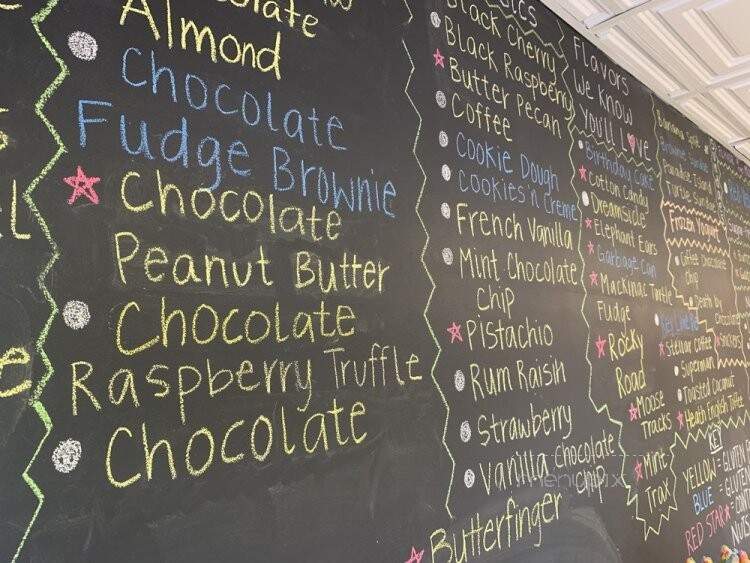 Chocolate
Almond
Chocolate
Fudge Brownie
Chocolate
Peanut Butter
Chocolate
Raspberry Truffle
Chocolate
Black Cherry
Black Raspberry
Butter Pecan
Coffee
Cookie Dough
Cookies'n Creme
French Vanilla
Mint Chocolate
Chip
Pistachio
Rum Raisin
Strawberry
Vanilla Chocolate
Chip
Butterfinger
Flavors
We Know
You'll Love
Birthday Cake
Cotton Candy
Dreamsicle
Elephant Ears
Garbage Can
Mackinac Turtle
Fudge
Rocky
Road
Moose
Tracks
Mint
Trax
Banana Split
Brownie Sundae
Turtle Sundae
Frozen Yogurt
Coffee Chocolate
Chip
Death by
Chocolate
Key Lime Pie
Stellar Coffee
Snickers
Superman
Toasted Coconut
Heath English Toffee
KEY
YELLOW = GLUTEN
BLUE = GLUTEN
RED STAR =
NUTS